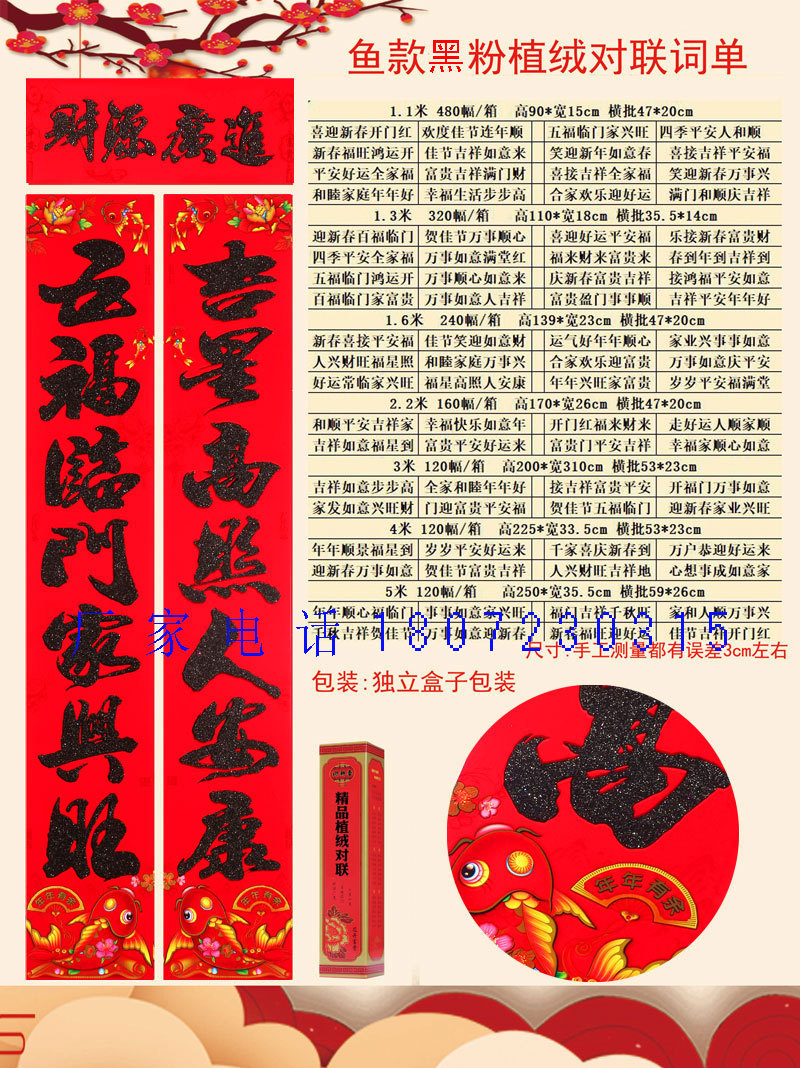 鱼款黑粉植绒对联词单
財源廣進
五福臨門家興旺
吉星高照人安康
1.1米 480幅/箱 高90*宽15cm 横批47*20cm
喜迎新春开门红 欢度佳节连年顺 五福临门家兴旺 四季平安人和顺
新春福旺鸿运开 佳节吉祥如意来 笑迎新年如意春 喜接吉祥平安福
平安好运全家福 富贵吉祥满门财 喜接吉祥全家福 笑迎新春万事兴
和睦家庭年年好 幸福生活步步高 合家欢乐迎好运 满门和顺庆吉祥
1.3米 320幅/箱 高110*宽18cm 横批35.5*14cm
迎新春百福临门 贺佳节万事顺心 喜迎好运平安福 乐接新春富贵财
四季平安全家福 万事如意满堂红 福来财来富贵来 春到年到吉祥到
五福临门鸿运开 万事顺心如意来 庆新春富贵吉祥 接鸿福平安如意
百福临门家富贵 万事如意人吉祥 富贵盈门事事顺 吉祥平安年年好
1.6米 240幅/箱 高139*宽23cm 横批47*20cm
新春喜接平安福 佳节笑迎如意财 运气好年年顺心 家业兴事事如意
人兴财旺福星照 和睦家庭万事兴 合家欢乐迎富贵 万事如意庆平安
好运常临家兴旺 福星高照人安康 年年兴旺家富贵 岁岁平安福满堂
2.2米 160幅/箱 高170*宽26cm 横批47*20cm
和顺平安吉祥家 幸福快乐如意年 开门红福来财来 走好运人顺家顺
吉祥如意福星到 富贵平安好运来 富贵门平安吉祥 幸福家顺心如意
3米 120幅/箱 高200*宽310cm 横批53*23cm
吉祥如意步步高 全家和睦年年好 接吉祥富贵平安 开福门万事如意
家发如意兴旺财 门迎富贵平安福 贺佳节五福临门 迎新春家业兴旺
4米 120幅/箱 高225*宽33.5cm 横批53*23cm
年年顺景福星到 岁岁平安好运来 千家喜庆新春到 万户恭迎好运来
迎新春万事如意 贺佳节富贵吉祥 人兴财旺吉祥地 心想事成如意家
5米 120幅/箱 高250*宽35.5cm 横批59*26cm
年年顺心福临门 事事如意家兴旺 福门吉祥千秋旺 家和人顺万事兴
千秋吉祥贺佳节 万事如意迎新春 新春福旺迎好运 佳节吉祥开门红
厂家电话 18072330315
尺寸:手工测量都有误差3cm左右
包装:独立盒子包装
精品植绒对联
年年有余
年年有余
年年有余